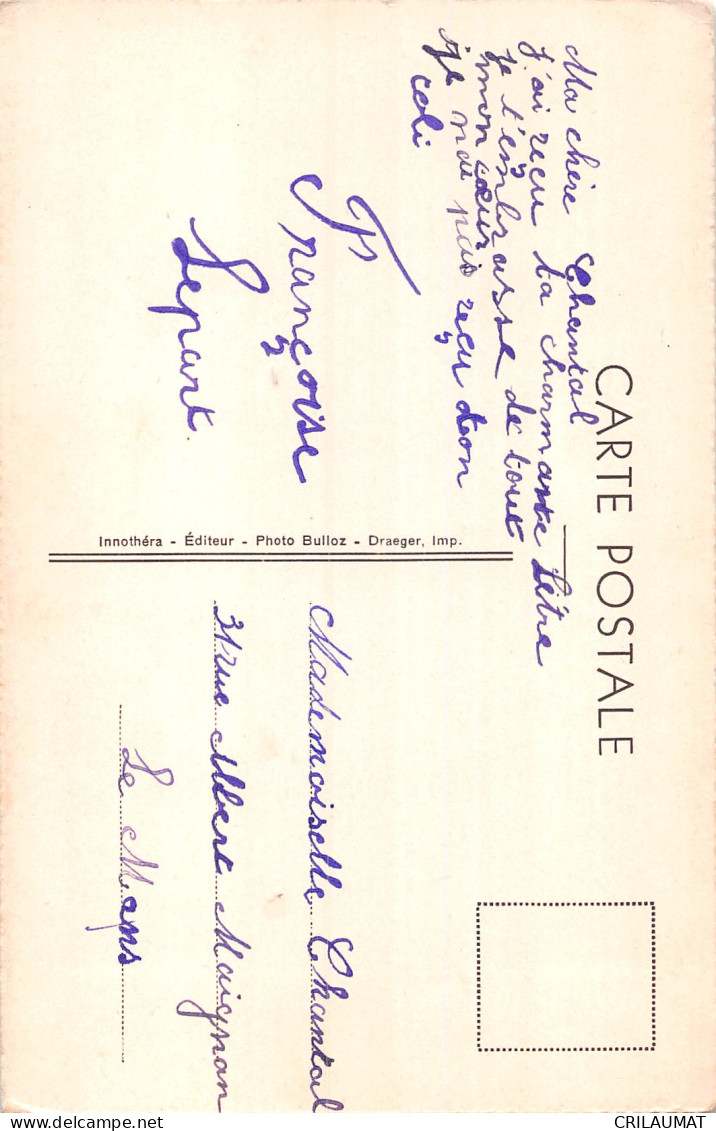 CARTE POSTALE
Ma chère Chantal
j'ai reçu ta charmante Lêtre
je t'embrasse de tout
mon cœur
je n'ai pas reçu don
coli
Françoise
Lepart
Innothéra - Éditeur - Photo Bulloz - Draeger, Imp.
Mademoiselle Chantal
31 rue Albert Maignan
Le Mans
CRILAUMAT